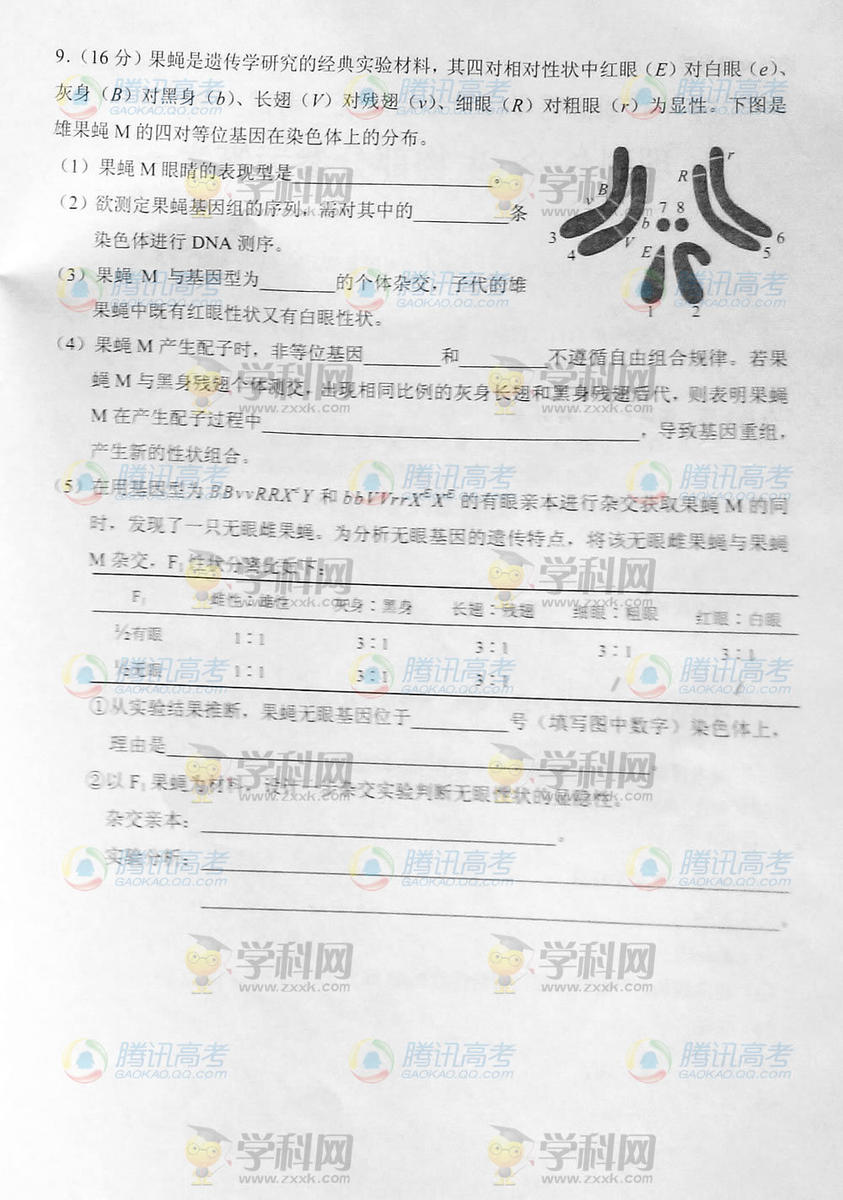 9.（16 分）果蝇是遗传学研究的经典实验材料，其四对相对性状中红眼（E）对白眼（e）、
灰身（B）对黑身（b）、长翅（V）对残翅（v）、细眼（R）对粗眼（r）为显性。下图是
雄果蝇 M 的四对等位基因在染色体上的分布。
（1）果蝇 M 眼睛的表现型是____________。
（2）欲测定果蝇基因组的序列，需对其中的________条
染色体进行 DNA 测序。
（3）果蝇 M 与基因型为________的个体杂交，子代的雄
果蝇中既有红眼性状又有白眼性状。
B
v
b
V
R
r
E
7 8
3
4
5
6
1
2
（4）果蝇 M 产生配子时，非等位基因________和________不遵循自由组合规律。若果
蝇 M 与黑身残翅个体测交，出现相同比例的灰身长翅和黑身残翅后代，则表明果蝇
M 在产生配子过程中________________，导致基因重组，
产生新的性状组合。
（5）在用基因型为 BBvvRRXᵉY 和 bbVVrrXᴱXᴱ 的有眼亲本进行杂交获取果蝇 M 的同
时，发现了一只无眼雌果蝇。为分析无眼基因的遗传特点，将该无眼雌果蝇与果蝇
M 杂交，F₁ 性状分离比如下：
F₁ 雄性：雌性 灰身：黑身 长翅：残翅 细眼：粗眼 红眼：白眼
½有眼 1：1 3：1 3：1 3：1 3：1
½无眼 1：1 3：1 3：1 / /
①从实验结果推断，果蝇无眼基因位于________号（填写图中数字）染色体上，
理由是________________。
②以 F₁ 果蝇为材料，设计一次杂交实验判断无眼性状的显隐性。
杂交亲本：________________。
实验分析：________________
________________。
学科网
www.zxxk.com
腾讯高考
GAOKAO.QQ.COM